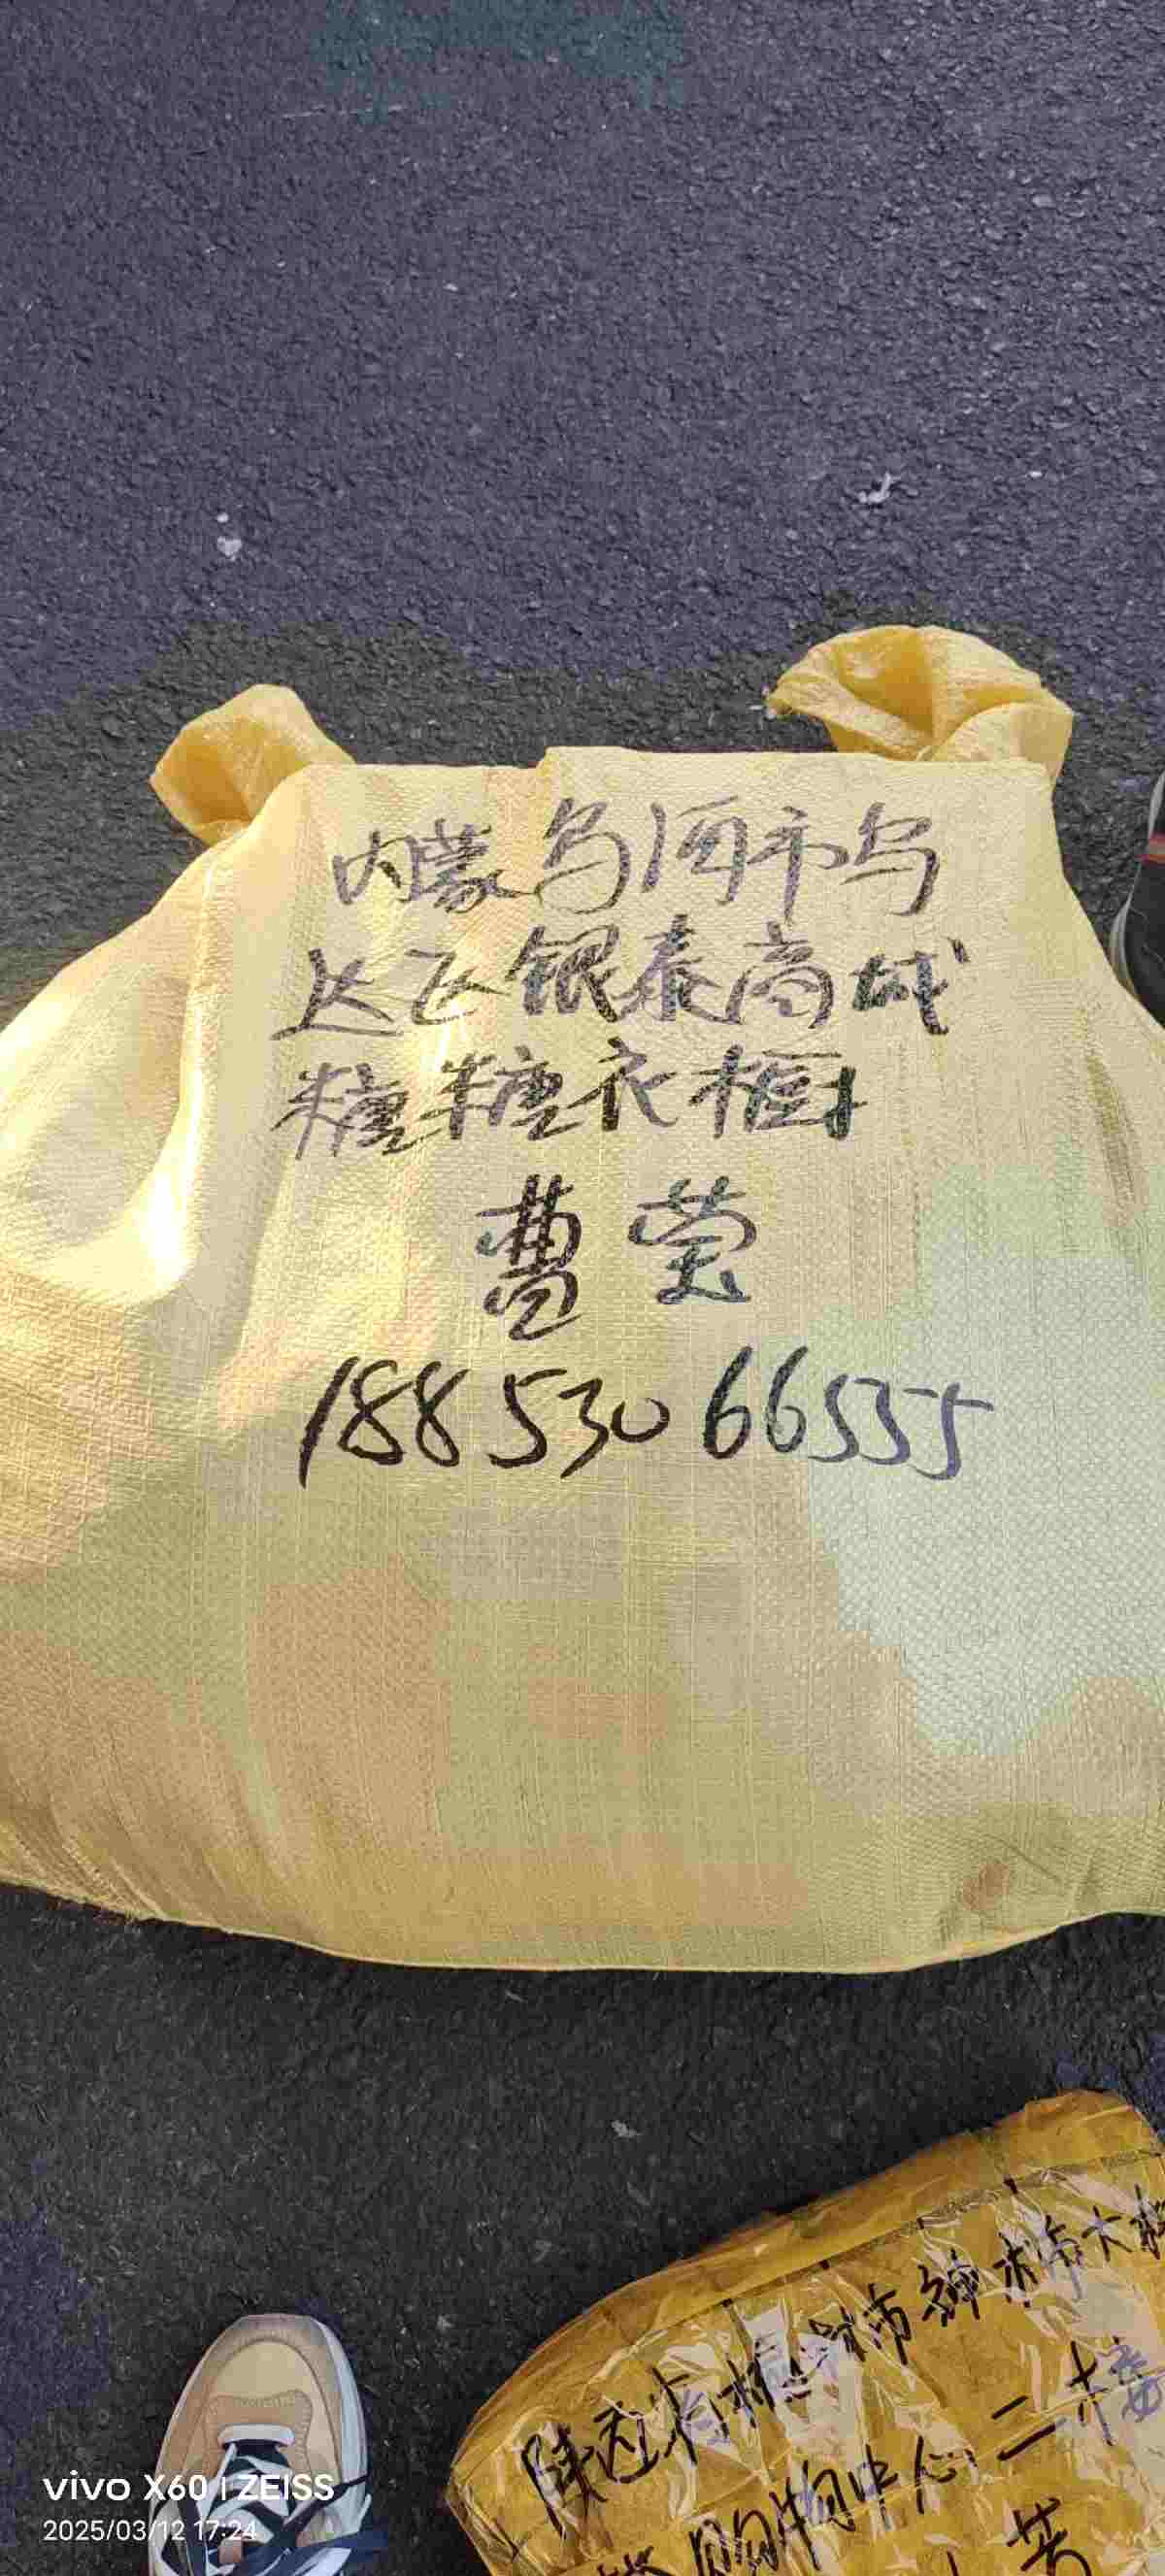 内蒙乌海市乌
达区银泰商城
糖糖衣橱
曹莹
188 530 66555
陕西省榆林市神木市大
购物中心二楼
vivo X60 | ZEISS
2025/03/12 17:24